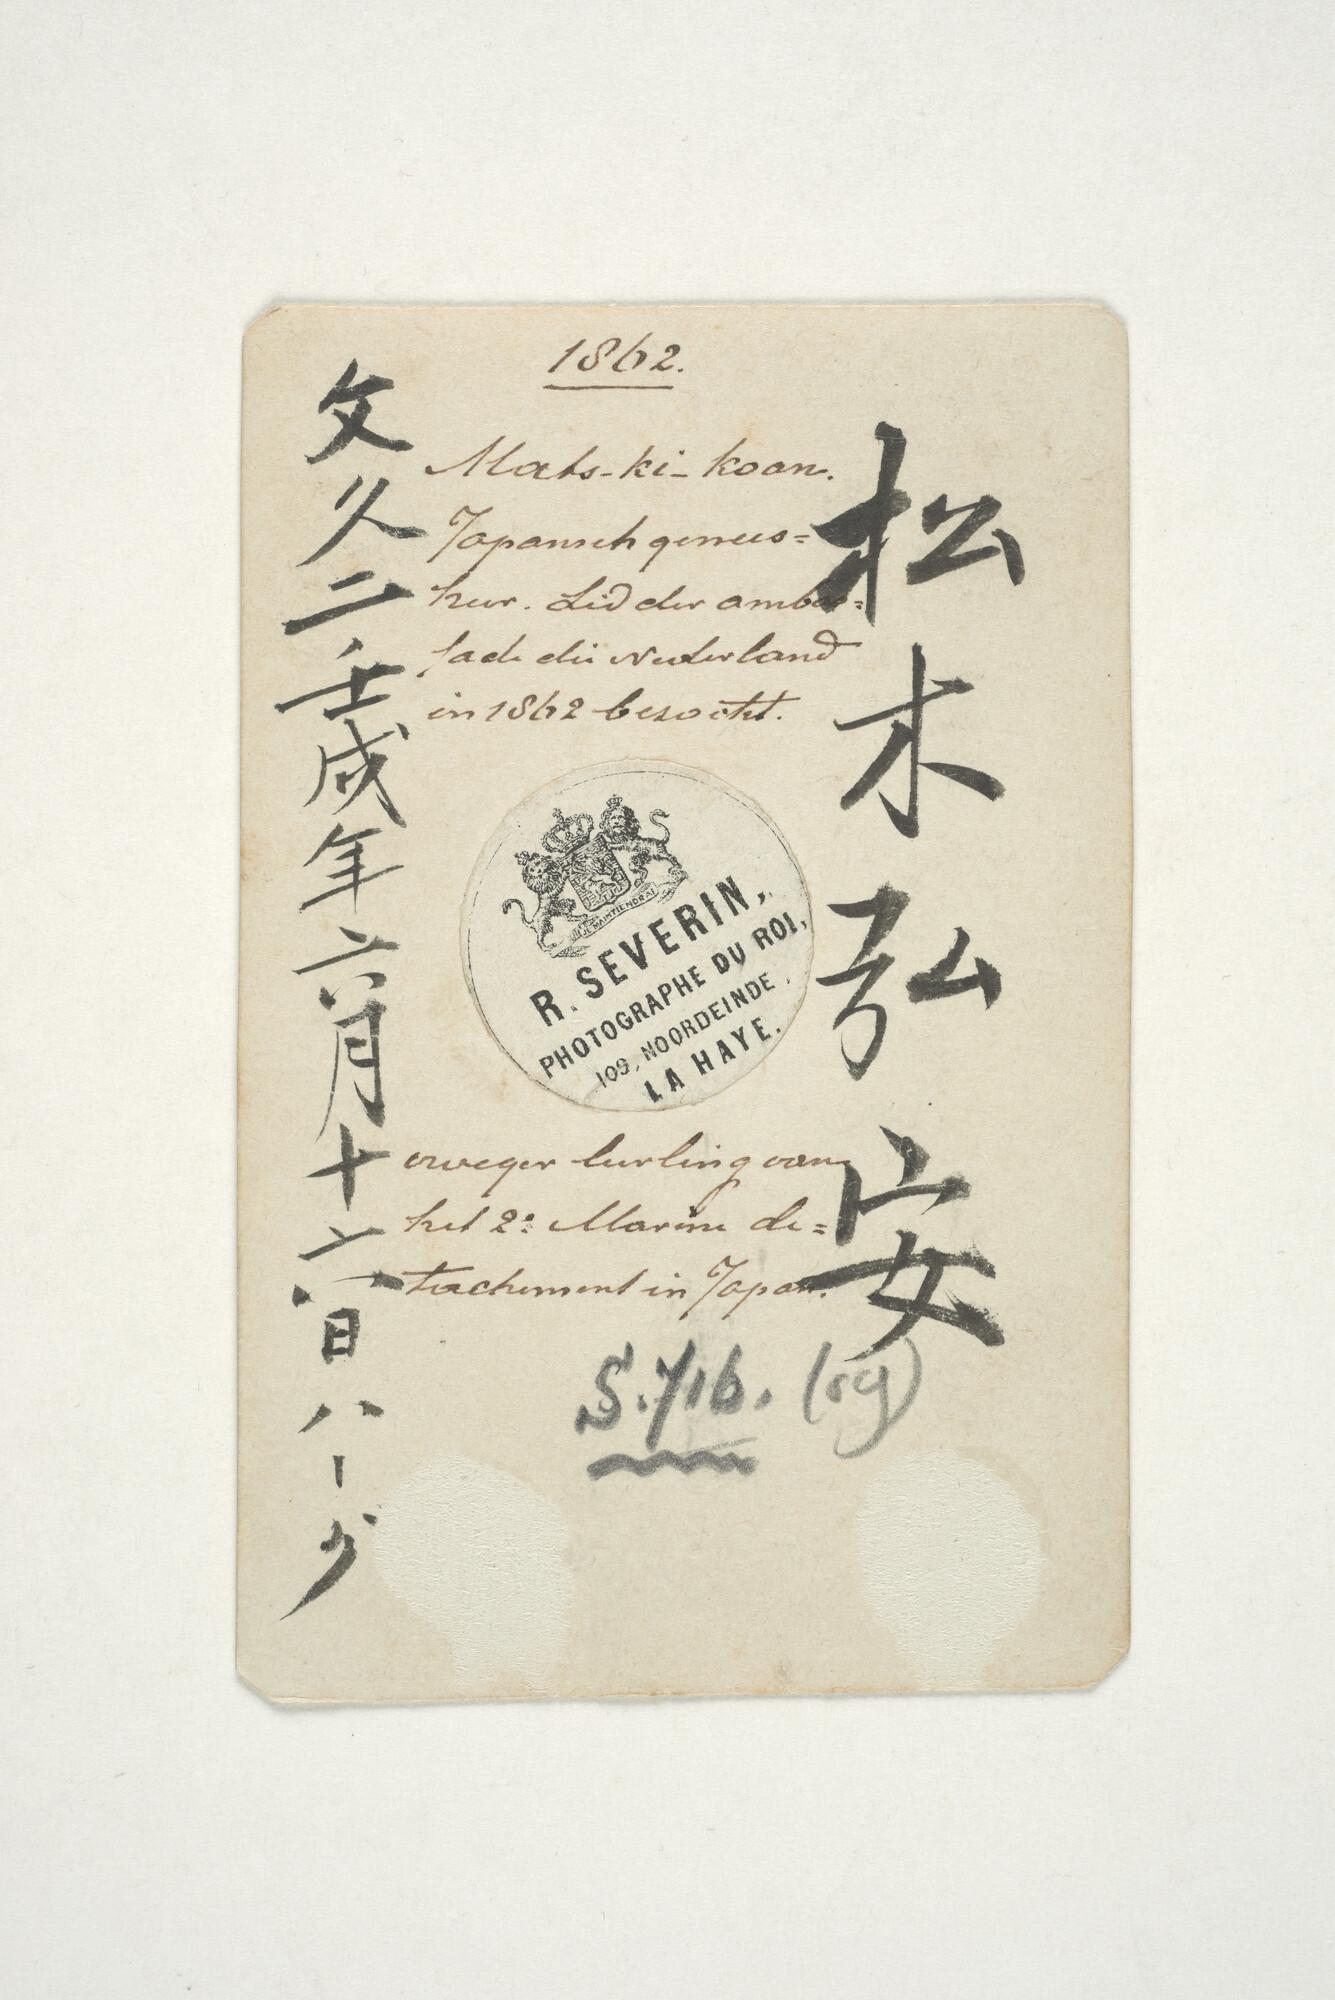 1862.
Mats-ki-koan.
Japansch genees=
heer. Lid der ambas=
sade die Nederland
in 1862 bezocht.
JE MAINTIENDRAI
R. SEVERIN,
PHOTOGRAPHE DU ROI,
109, NOORDEINDE,
LA HAYE.
vroeger leerling van
het 2e Marine de=
tachement in Japan.
S.716.
松木弘安
文久二壬戌年六月十六日ハーグ